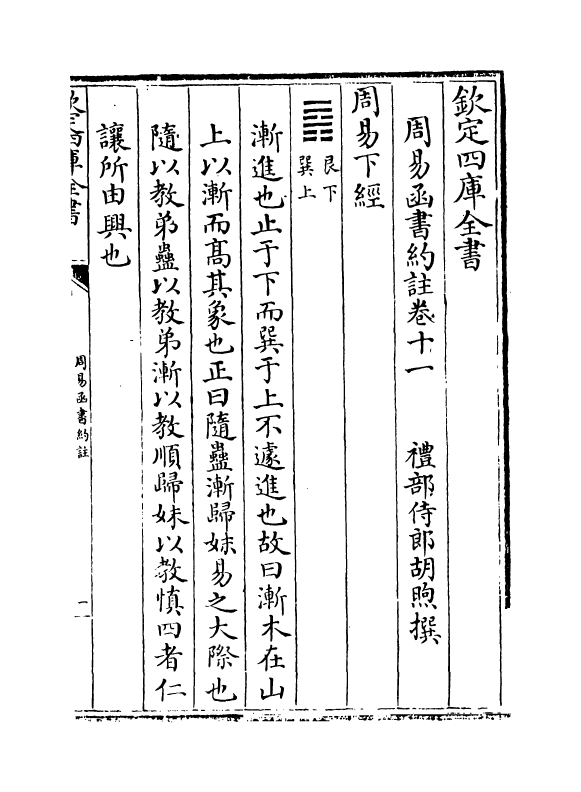 欽定四庫全書
周易函書約註卷十一　禮部侍郎胡煦撰
周易下經
䷴艮下
巽上
漸進也止于下而巽于上不遽進也故曰漸木在山
上以漸而髙其象也正曰隨蠱漸歸妹易之大際也
隨以教弟蠱以教弟漸以教順歸妹以教慎四者仁
讓所由興也
欽定四庫全書
周易函書約註
一